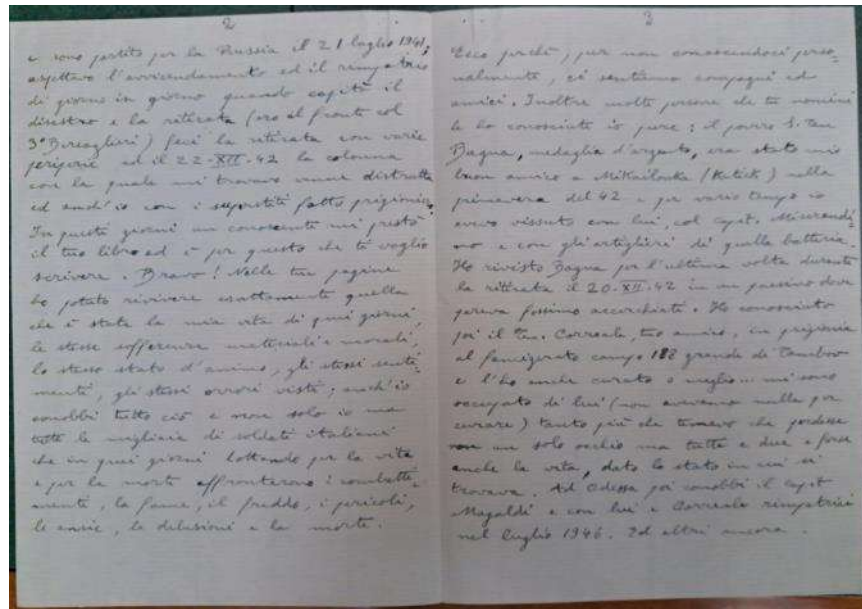 2
e sono partito per la Russia il 21 luglio 1941;
aspettavo l'avvicendamento ed il rimpatrio
di giorno in giorno quando capitò il
disastro e la ritirata (ero al fronte col
3° Bersaglieri) feci la ritirata con varie
peripezie ed il 22-XII-42 la colonna
con la quale mi trovavo venne distrutta
ed anch'io con i superstiti fatto prigioniero.
In questi giorni un conoscente mi prestò
il tuo libro ed è per questo che ti voglio
scrivere. Bravo! Nelle tue pagine
ho potuto rivivere esattamente quella
che è stata la mia vita di quei giorni,
le stesse sofferenze materiali e morali,
lo stesso stato d'animo, gli stessi senti-
menti, gli stessi orrori visti; anch'io
conobbi tutto ciò e non solo io ma
tutte le migliaia di soldati italiani
che in quei giorni lottando per la vita
e per la morte affrontarono i combatti-
menti, la fame, il freddo, i pericoli,
le ansie, le delusioni e la morte.
3
Ecco perchè, pur non conoscendoci perso-
nalmente, ci sentiamo compagni ed
amici. Inoltre molte persone che tu nomini
le ho conosciute io pure; il povero S. Ten
Bagna, medaglia d'argento, era stato mio
buon amico a Mikailowka nella
primavera del 42 e per vario tempo io
avevo vissuto con lui, col capit.
e con gli artiglieri di quella batteria.
Ho rivisto Bagna per l'ultima volta durante
la ritirata il 20-XII-42 in un paesino dove
pareva fossimo accerchiati. Ho conosciuto
poi il Ten. Correale, tuo amico, in prigionia
al famigerato campo 188 grande di Tambow
e l'ho anche curato o meglio... mi sono
occupato di lui (non avevamo nulla per
curare) tanto più che temevo che perdesse
non un solo occhio ma tutti e due e forse
anche la vita, dato lo stato in cui si
trovava. Ad Odessa poi conobbi il Capit
Magaldi e con lui e Correale rimpatriai
nel luglio 1946. Ed altri ancora.